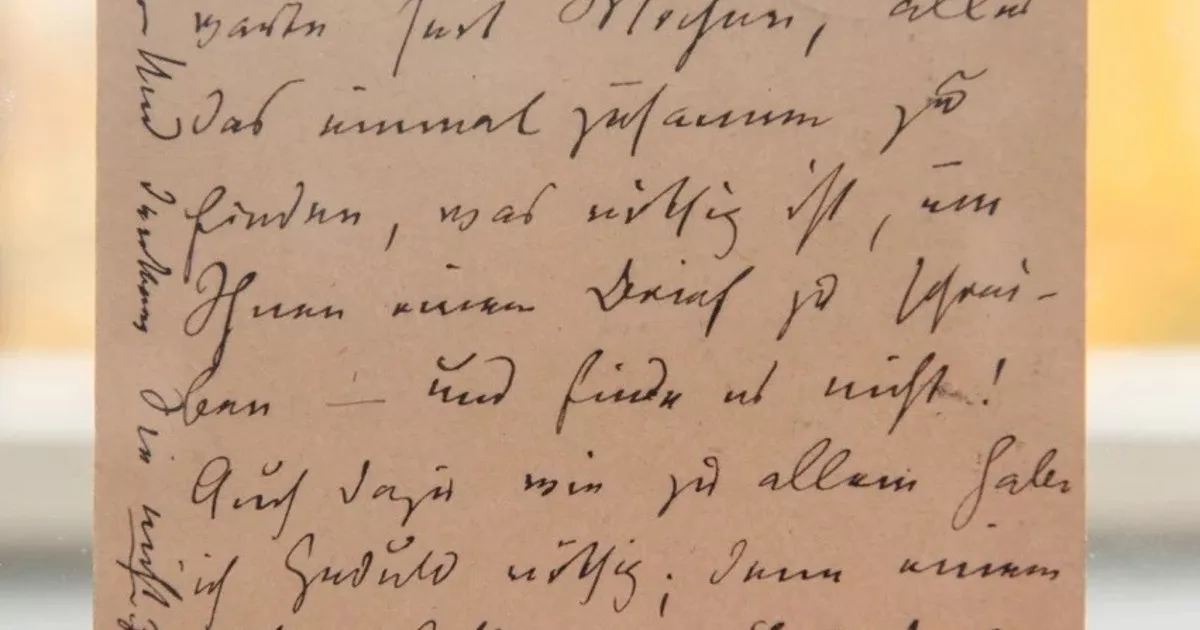 warte seit Wochen, alles
das einmal zusammen zu
finden, was nöthig ist, um
Ihnen einen Brief zu schrei-
ben — und finde es nicht!
Auch dazu wie zu allem habe
ich Geduld nöthig; denn einen
Und
Sie nicht